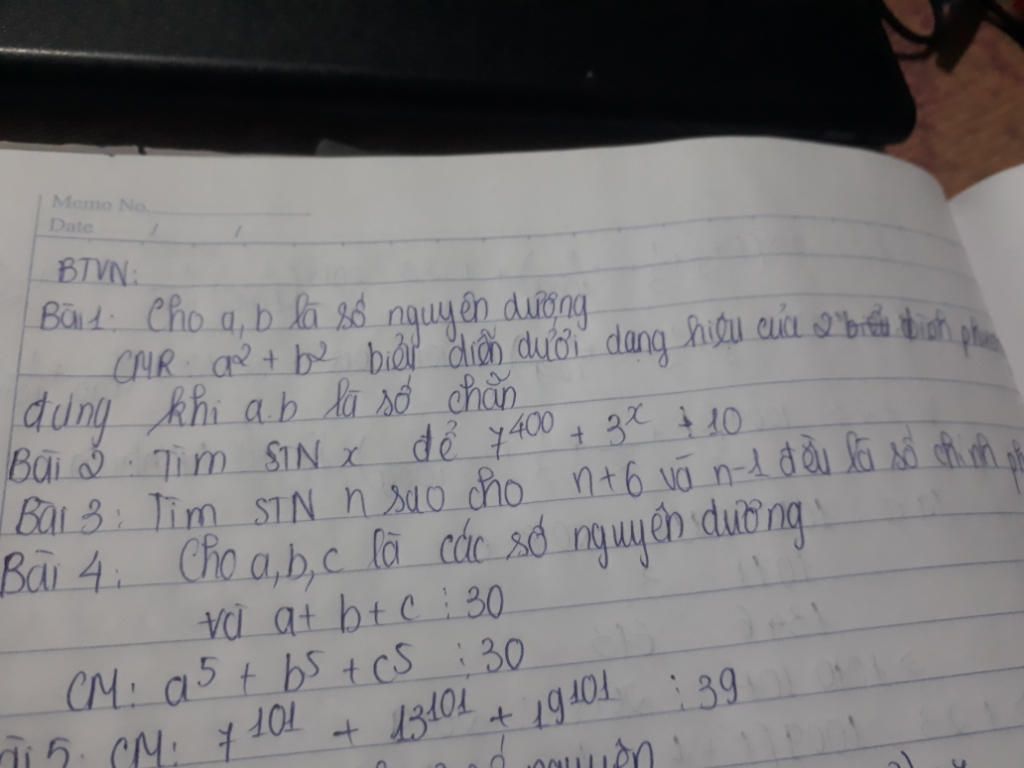 Memo No.
Date / /
BTVN:
Bài 1: Cho a, b là số nguyên dương
CMR: a² + b² biểu diễn dưới dạng hiệu của 2 bình
đúng khi a.b là số chẵn
Bài 2: Tìm STN x để 7⁴⁰⁰ + 3ˣ ⋮ 10
Bài 3: Tìm STN n sao cho n+6 và n-1 đều là số chính
Bài 4: Cho a, b, c là các số nguyên dương
và a + b + c ⋮ 30
CM: a⁵ + b⁵ + c⁵ ⋮ 30
5. CM: 7¹⁰¹ + 13¹⁰¹ + 19¹⁰¹ ⋮ 39
nguyên